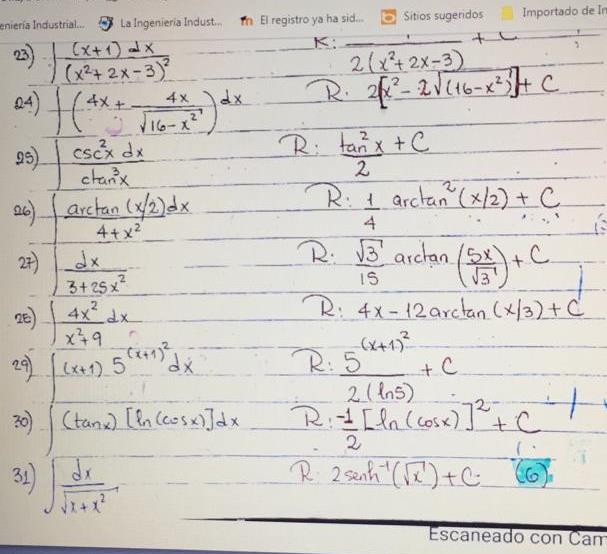 eniería Industrial... La Ingeniería Indust... El registro ya ha sid... Sitios sugeridos Importado de In
23) ∫ (x+1) dx / (x²+2x-3)² R: / 2(x²+2x-3) + C
24) ∫ (4x + 4x / √(16-x²)) dx R: 2[x² - 2√(16-x²)] + C
25) ∫ csc²x dx / ctan³x R: tan²x / 2 + C
26) ∫ arctan (x/2) dx / 4+x² R: 1/4 arctan² (x/2) + C
27) ∫ dx / 3+25x² R: √3 / 15 arctan (5x/√3) + C
28) ∫ 4x² dx / x²+9 R: 4x - 12 arctan (x/3) + C
29) ∫ (x+1) 5^(x+1)² dx R: 5^(x+1)² / 2(ln5) + C
30) ∫ (tanx) [ln (cosx)] dx R: -1/2 [ln (cosx)]² + C
31) ∫ dx / √(x+x²) R: 2 senh⁻¹(√x) + C (6)
Escaneado con Cam